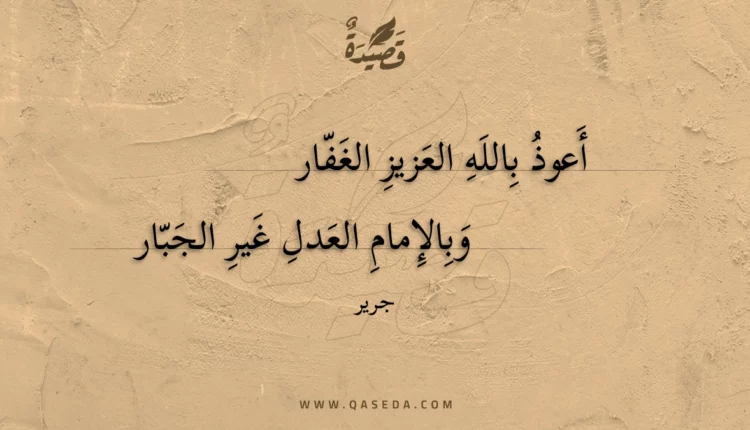 قَصِيدَةٌ
أَعوذُ بِاللَهِ العَزيزِ الغَفّار
وَبِالإِمامِ العَدلِ غَيرِ الجَبّار
جرير
WWW.QASEDA.COM